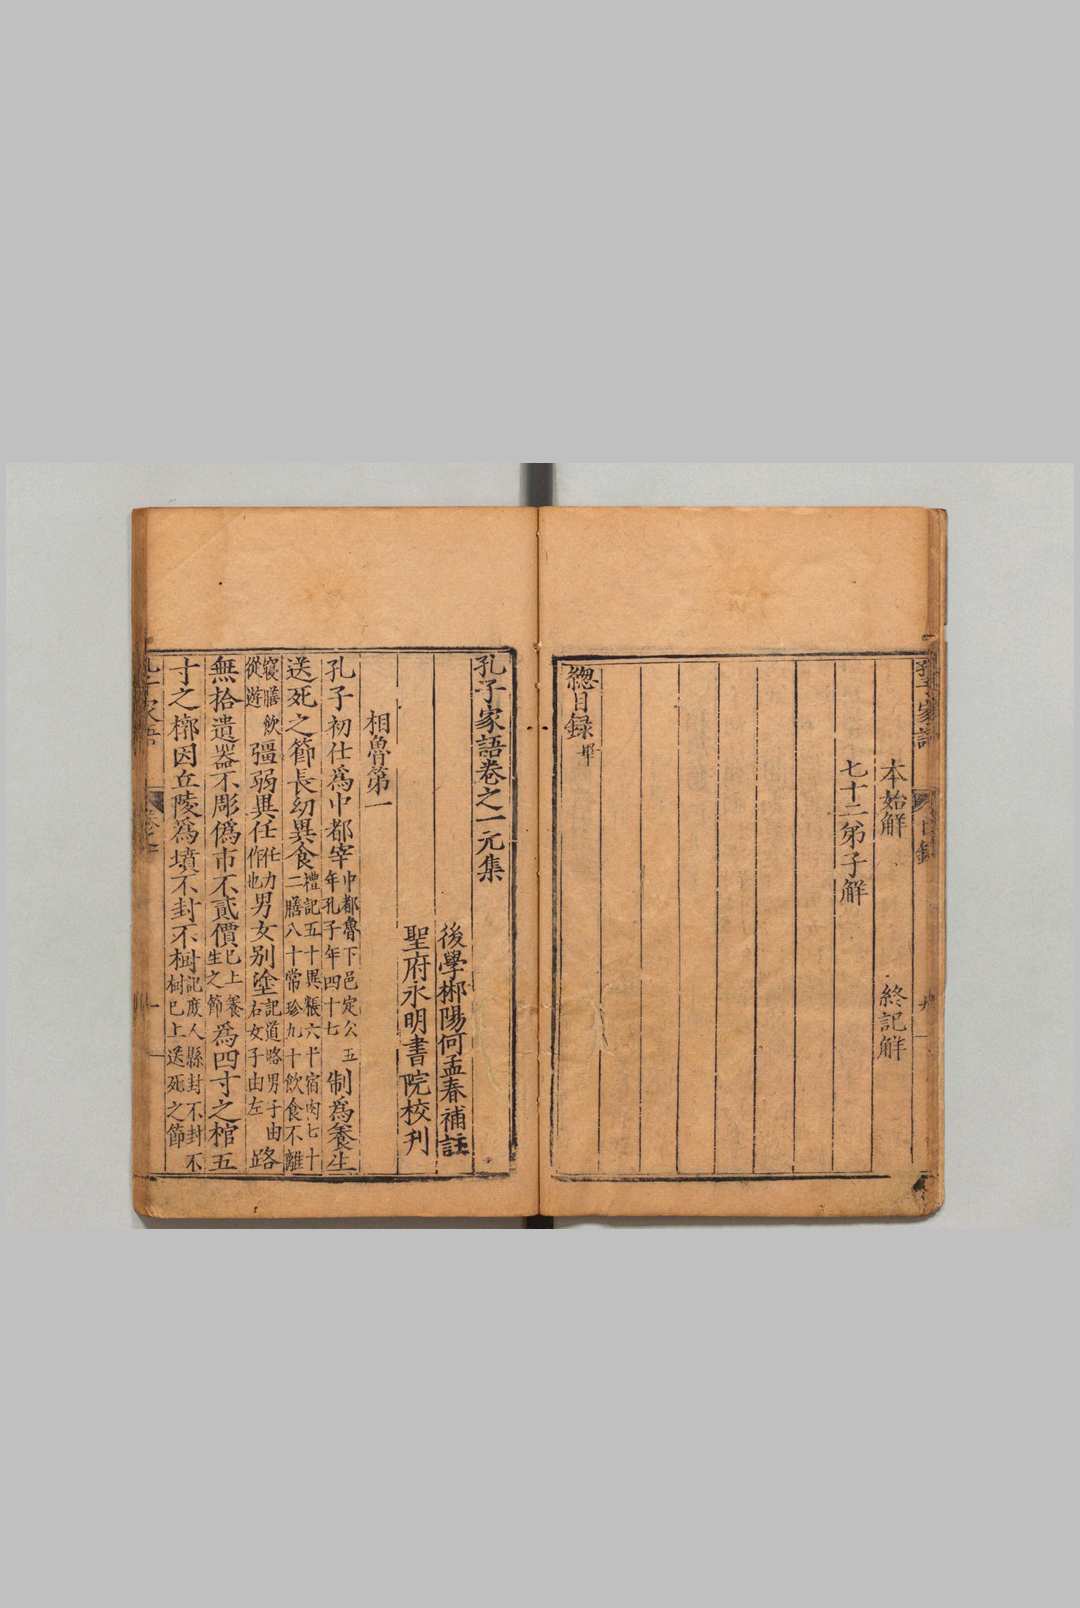 孔子家語
目録
本始解 終記解
七十二弟子解
總目録畢
孔子家語卷之一元集
後學郴陽何孟春補註
聖府永明書院校刊
相魯第一
孔子初仕爲中都宰中都魯下邑定公五年孔子年四十七制爲養生
送死之節長幼異食禮記五十異粻六十宿肉七十二膳八十常珍九十飲食不離
寢膳飲從遊彊弱異任任力作也男女別塗記道路男子由右女子由左路
無拾遺器不彫僞市不貳價已上養生之節爲四寸之棺五
寸之槨因丘陵爲墳不封不樹記庶人縣封不封不樹已上送死之節